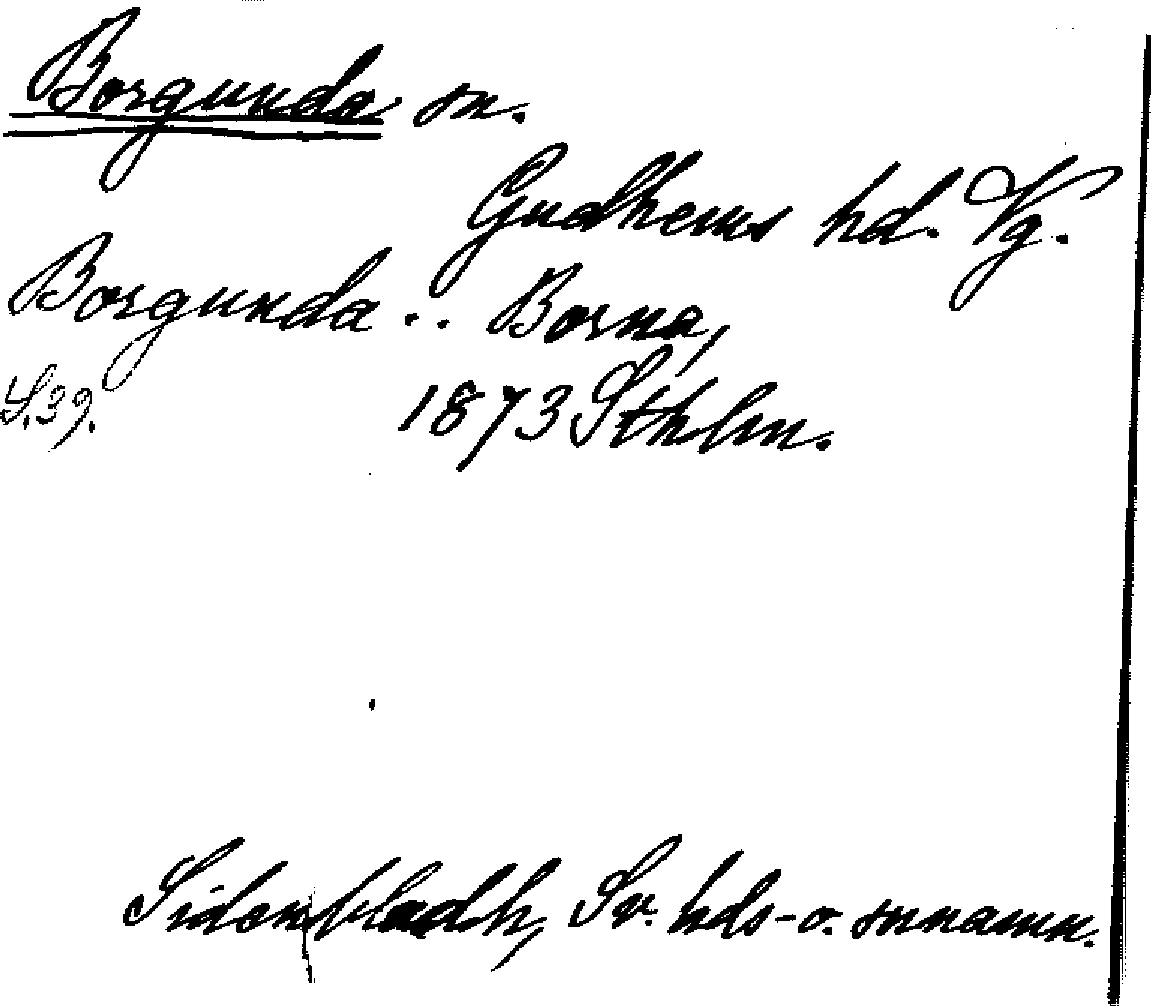 Borgunda sn.
Gudhems hd. Vg.
Borgunda .. Borna,
S. 39. 1873 Sthlm.
Sidenbladh, Sv. hds- o. snnamn.